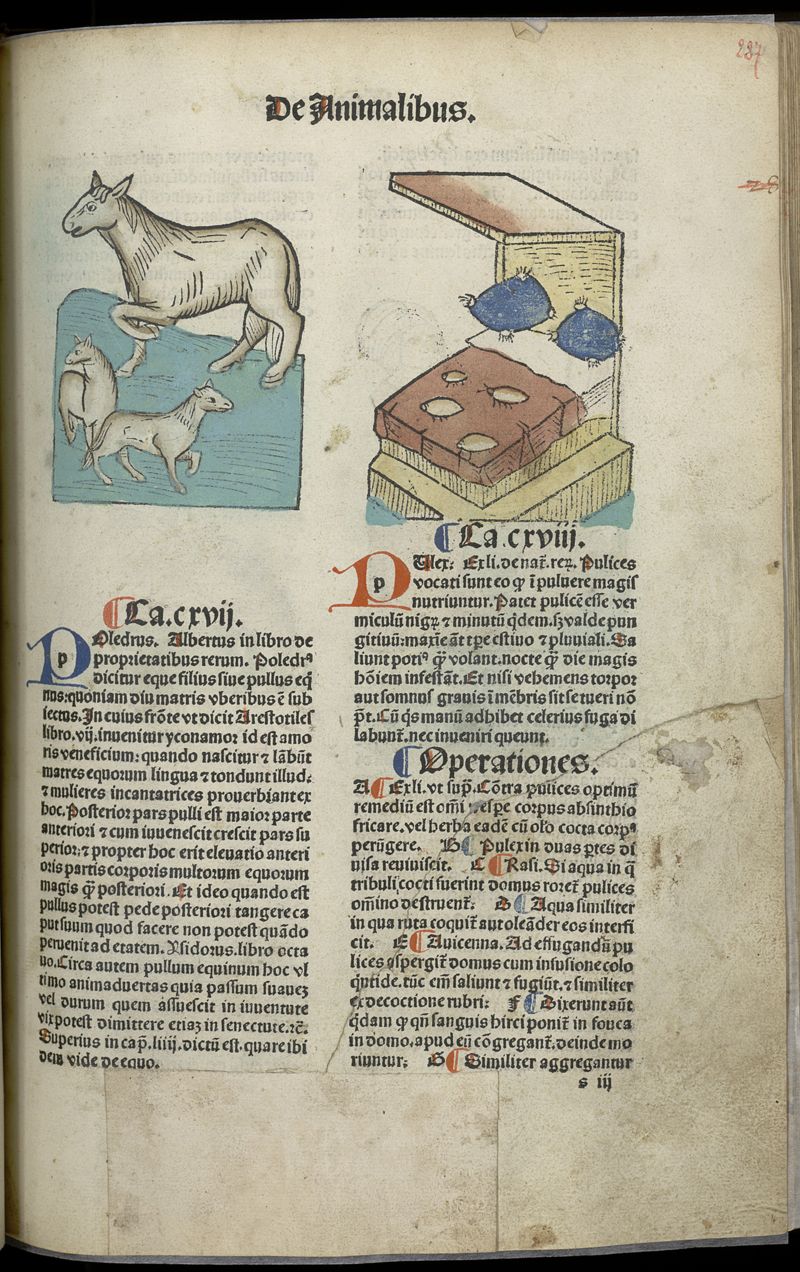 237
De Animalibus.
Ca.cxvij.
POledrus. Albertus in libro de
p
proprietatibus rerum. Poledrꝰ
dicitur eque filius siue pullus eq̄
nus: quoniam diu matris vberibus ē sub
iectus. In cuius frōte vt dicit Arestotiles
libro.vij.inuenitur yconamor id est amo
ris veneficium: quando nascitur ⁊ lābūt
matres equorum lingua ⁊ tondunt illud:
⁊ mulieres incantatrices prouerbiant ex
hoc. Posterior pars pulli est maior parte
anteriori ⁊ cum iuuenescit crescit pars su
perior: ⁊ propter hoc erit eleuatio anteri
oris partis corporis multorum equorum
magis q̄ꝫ posteriori. Et ideo quando est
pullus potest pede posteriori tangere ca
put suum quod facere non potest quādo
peruenit ad etatem. Ysidorus. libro octa
uo. Circa autem pullum equinum hoc vl
timo animaduertas quia passum suauez
vel durum quem assuescit in iuuentute
vix potest dimittere etiaꝫ in senectute.⁊c̄.
Superius in cap̄.liiij.dictū est.quare ibi
dem vide de equo.
Ca.cxviij.
PUlex: Ex li.de nat̄.reꝝ. Pulices
p
vocati sunt eo ꝙ ī puluere magis
nutriuntur. Patet pulicē esse ver
miculū nigꝝ ⁊ minutū q̄dem. sꝫ valde pun
gitiuū: maxīe āt tp̄e estiuo ⁊ pluuiali. Sa
liunt potiꝰ q̄ꝫ volant. nocte q̄ꝫ die magis
hōiem infestāt. Et nisi vehemens torpor
aut somnus grauis ī mēbris sit se tueri nō
p̄t. Cū q̄s manū adhibet celerius fuga di
labunt̄. nec inueniri queunt.
Operationes.
A Ex li. vt sup̄. Cōtra pulices optimū
remediū est om̄i vespe corpus absinthio
fricare. vel herba eadē cū oleo cocta corpꝰ
perūgere. B Pulex in duas p̄tes di
uisa reuiuiscit. C Rasi. Si aqua in q̄
tribuli cocti fuerint domus roret̄ pulices
om̄ino destruent̄: D Aqua similiter
in qua ruta coquit̄ aut oleāder eos interfi
cit. E Auicenna. Ad effugandū pu
lices ꝯspergit̄ domus cum infusione colo
q̄ntide. tūc em̄ saliunt ⁊ fugiūt. ⁊ similiter
ex decoctione rubri: F Dixerunt aūt
q̄dam ꝙ qn̄ sanguis hirci ponit̄ in fouea
in domo. apud eū cōgregant̄. deinde mo
riuntur: G Similiter aggregantur
s iij